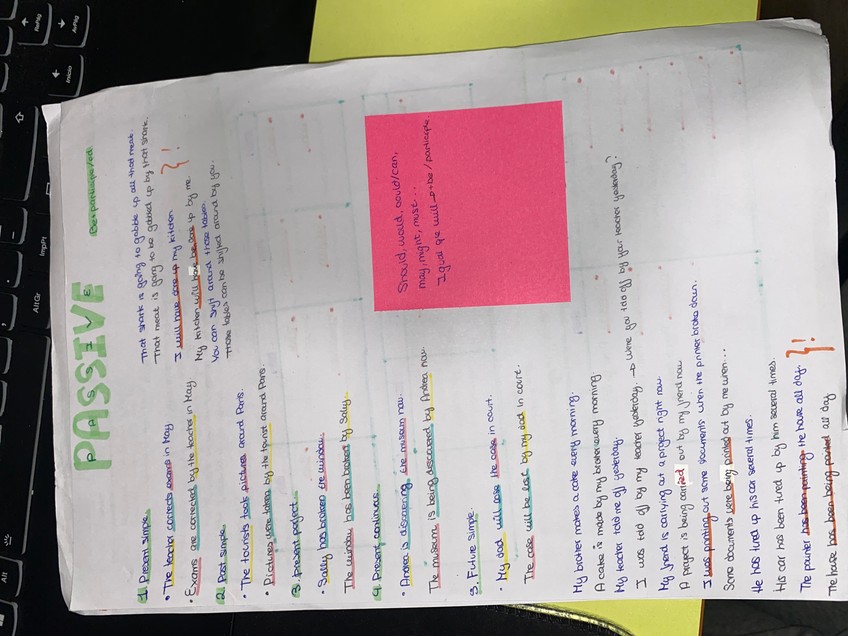 PASSIVE
PASSIVE
Be+participe/ed
1. Present simple.
• The teacher corrects exams in May
• Exams are corrected by the teacher in May
2. Past simple.
• The tourists took pictures around Paris.
• Pictures were taken by the tourist around Paris.
3. Present perfect.
• Sally has broken the window.
The window has been broken by Sally.
4. Present continuos.
• Andrea is discovering the museum now.
The museum is being discovered by Andrea now.
5. Future simple.
• My dad will lose the case in court.
The case will be lost by my dad in court.
That shark is going to gobble up all that meat.
That meat is going to be gobbled up by that shark.
I will have done up my kitchen
My kitchen will have be done up by me.
}!
You can shift around those tables.
Those tables can be shifted around by you.
Should, would, could/can,
may, might, must...
Igual que will → + be / participle
My brother makes a cake every morning.
A cake is made by my brother every morning.
My teacher told me off yesterday.
I was told off by my teacher yesterday → Were you told off by your teacher yesterday?
My friend is carrying out a project right now.
A project is being carried out by my friend now
I was printing out some documents when the printer broke down.
Some documents were being printed out by me when...
He has tured up his car several times.
His car has been tured up by him several times.
The painter has been painting the house all day.
The house has been being painted all day
}!
RePág
AvPág
Inicio
ImpPt
Alt Gr
Alt